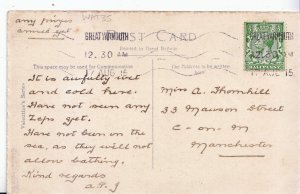 any prizes
annual yet
WM735
POST CARD
GREAT YARMOUTH
12.30 AM
17 AUG 15
Printed in Great Britain
This space may be used for Communication
The Address to be written here
GREAT YARMOUTH
12.30 AM
17 AUG 15
HALFPENNY
Valentine's Series
It is awfully wet
and cold here.
Have not seen any
Zeps yet.
Have not been on the
sea, as they will not
allow bathing.
Kind regards
Miss A. Thornhill
33 Mawson Street
C-on-M
Manchester